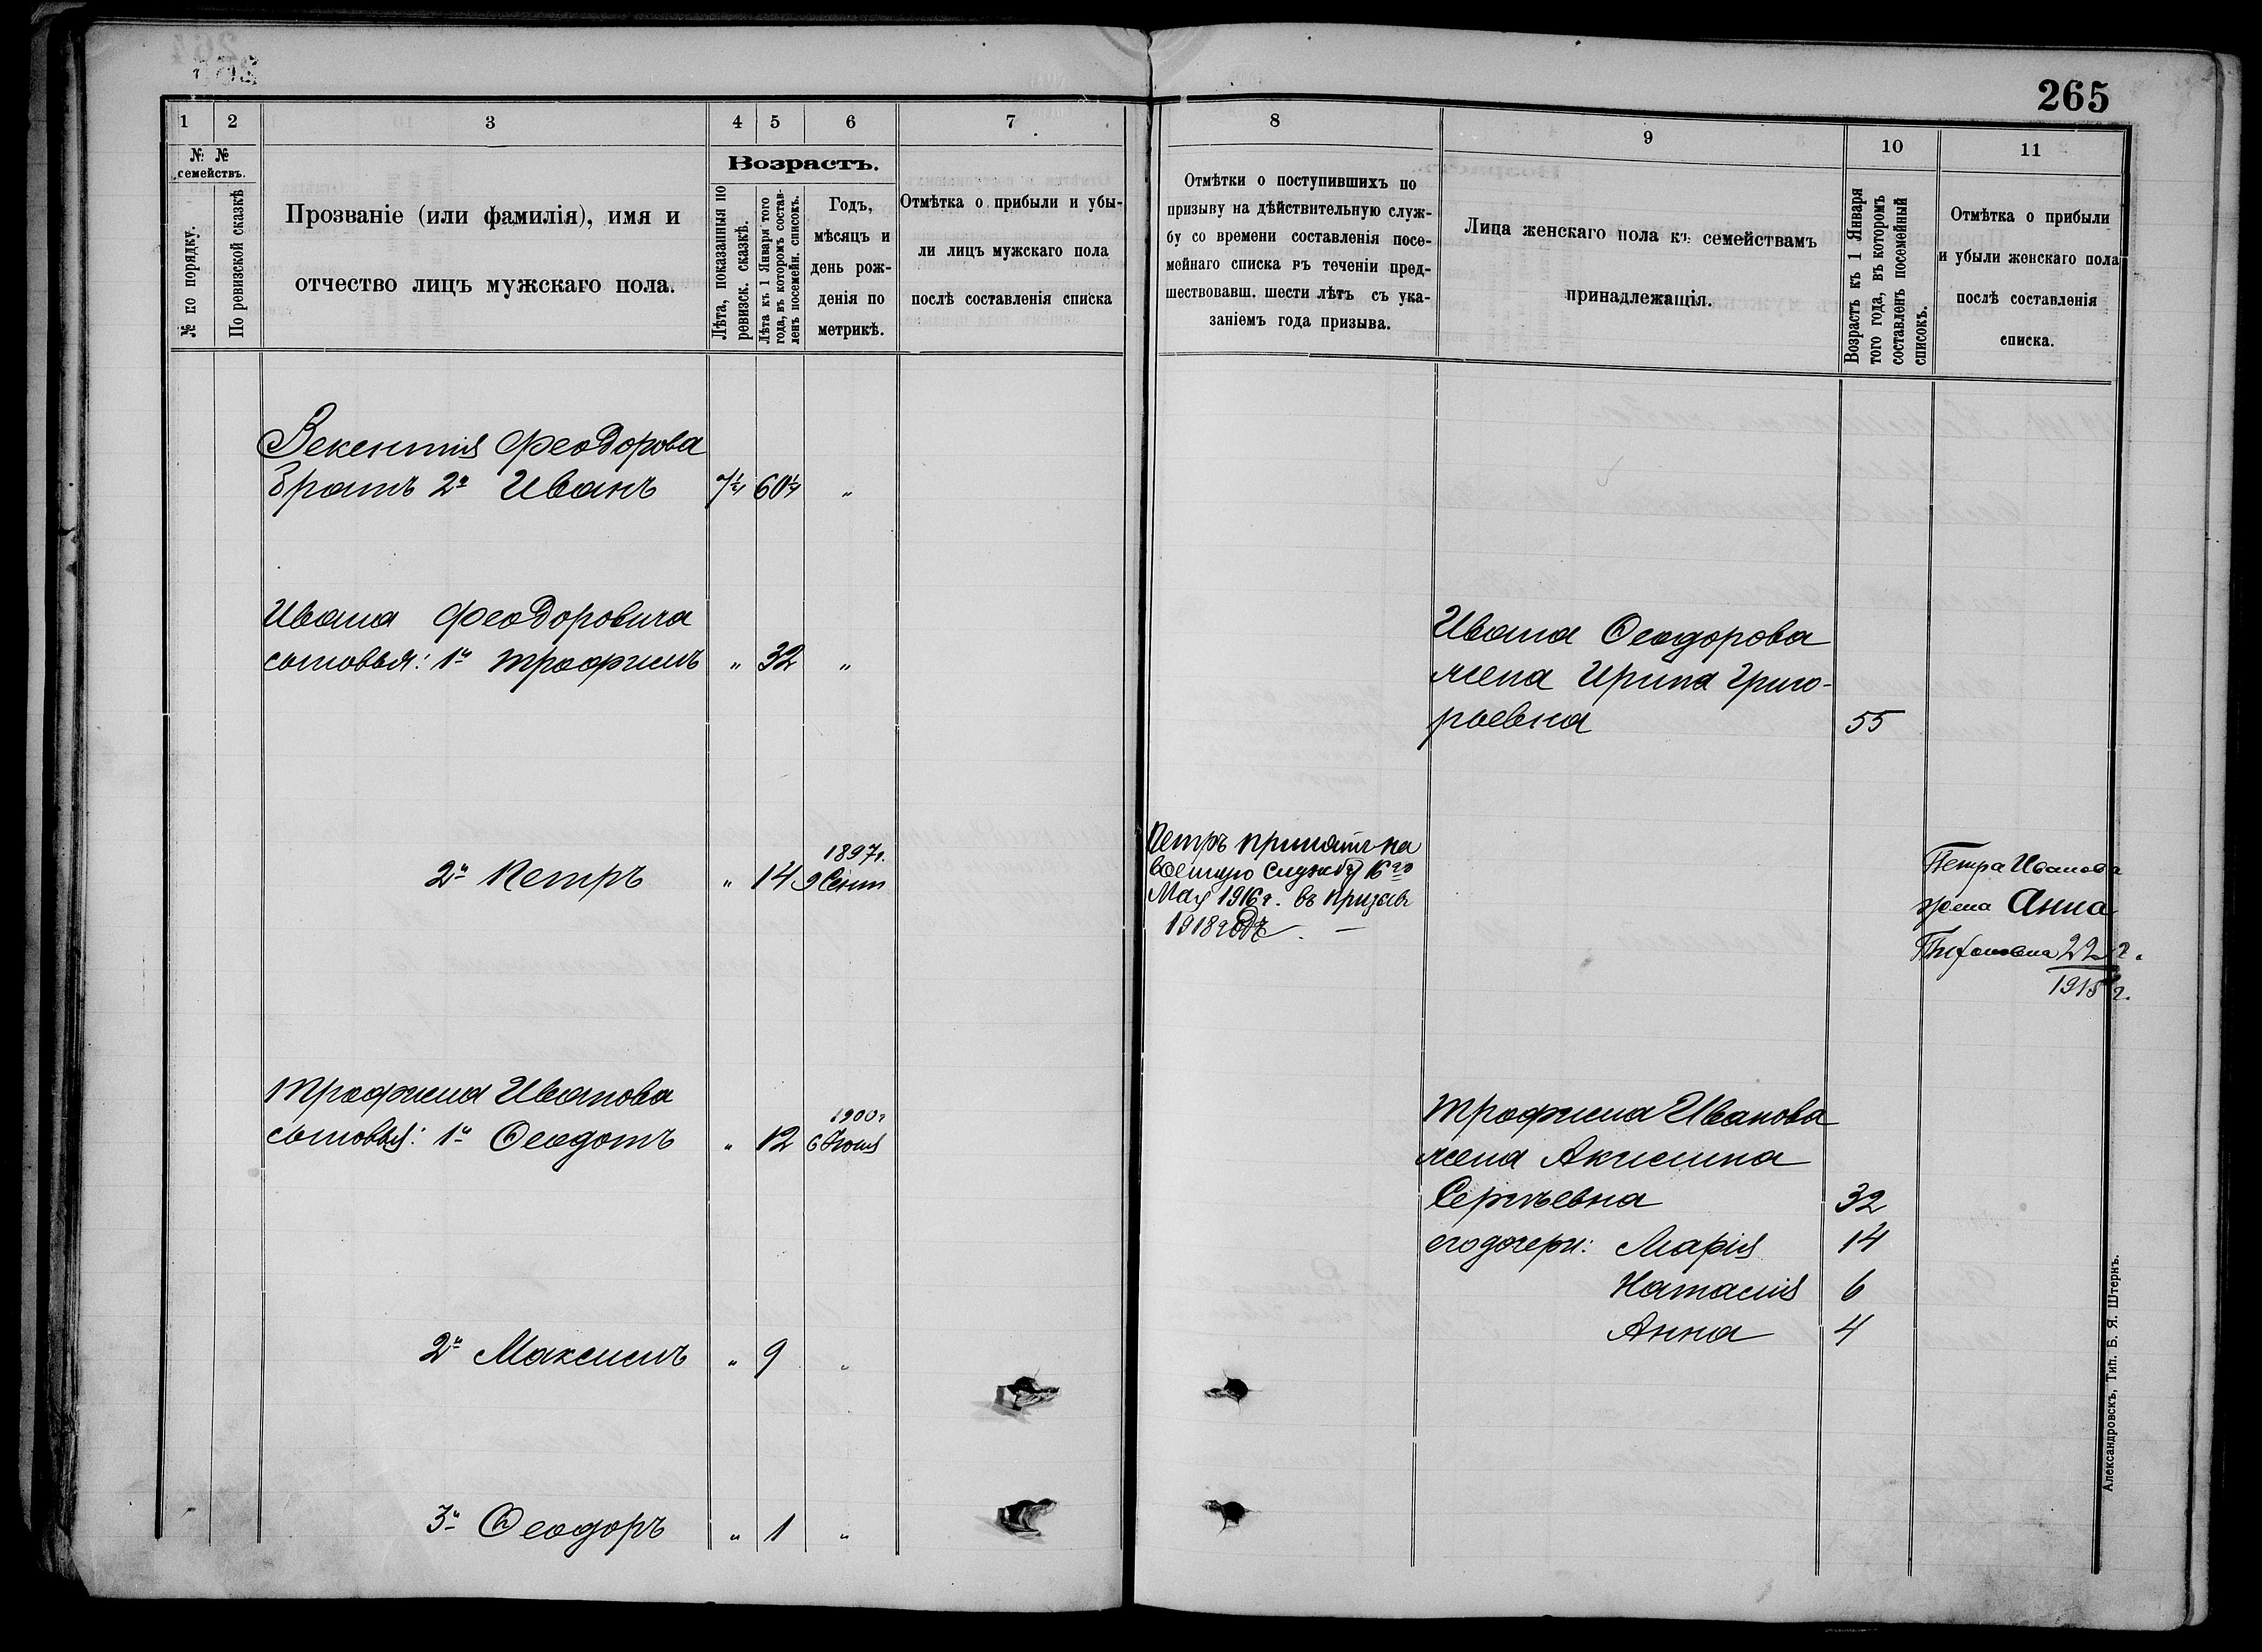 265
1
2
3
4
5
6
7
8
9
10
11
№ №
семействъ.
№ по порядку.
По ревизской сказкѣ
Прозваніе (или фамилія), имя и
отчество лицъ мужскаго пола.
Возрастъ.
Лѣта, показанныя по
ревизск. сказкѣ.
Лѣта къ 1 Января того
года, въ которомъ состав-
ленъ посемейн. списокъ.
Годъ,
мѣсяцъ и
день рож-
денія по
метрикѣ.
Отмѣтка о прибыли и убы-
ли лицъ мужскаго пола
послѣ составленія списка
Отмѣтки о поступившихъ по
призыву на дѣйствительную служ-
бу со времени составленія посе-
мейнаго списка въ теченіи пред-
шествовавш. шести лѣтъ съ ука-
заніемъ года призыва.
Лица женскаго пола къ семействамъ
принадлежащія.
Возрастъ къ 1 Января
того года, въ которомъ
составленъ посемейный
списокъ.
Отмѣтка о прибыли
и убыли женскаго пола
послѣ составленія
списка.
Векентія Феодорова
братъ 2й Иванъ 7½ 60½ "
Ивана Феодоровича
сыновья: 1й Трофимъ " 32 "
Ивана Ѳеодорова
жена Ирина Григо-
рьевна 55
1897г.
2й Петръ " 14 9 Сент
Петръ принятъ на
военную службу 16го
Мая 1916г. въ призывъ
1918 года. —
Петра Иванова
жена Анна
22 г.
1915 г.
Трофима Иванова
1900г
сыновья: 1й Ѳеодотъ " 12 6 Іюня
Трофима Иванова
жена Акилина
Сергѣевна 32
его дочери: Марія 14
Наталія 6
Анна 4
2й Максимъ " 9 "
3й Ѳеодоръ " 1 "
Александровскъ, Тип. Б. Я. Штернъ.